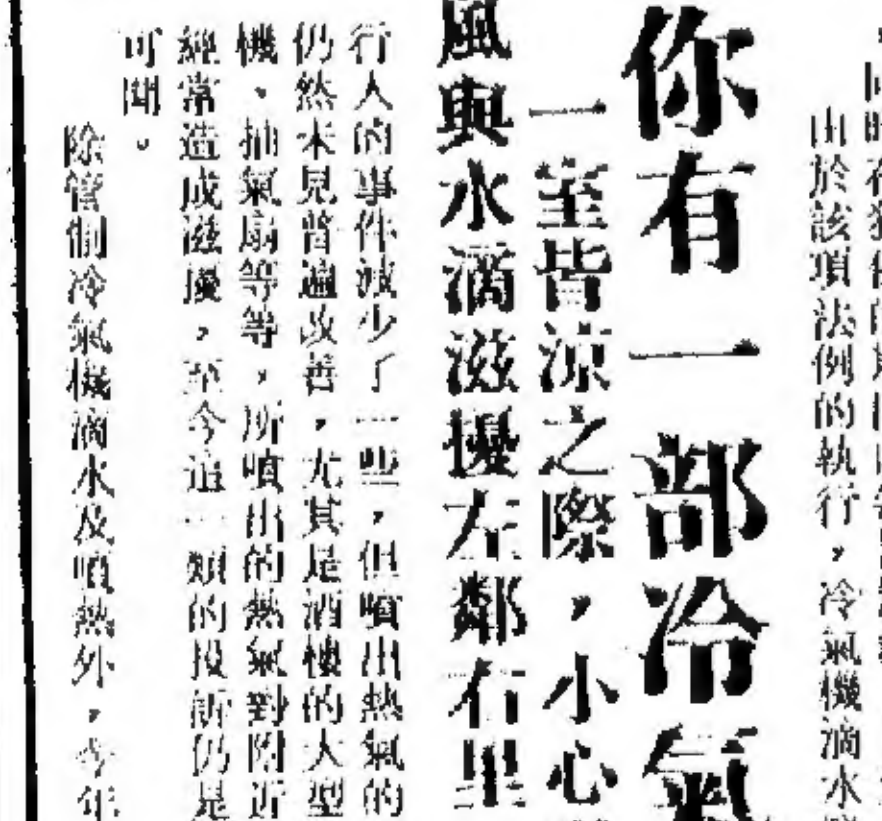 由於該項法例的執行，冷氣機滴水
你有一部冷氣
一室皆涼之際，小心
風與水滴滋擾左鄰右里
行人的事件減少了一些，但噴出熱氣的
仍然未見普遍改善，尤其是酒樓的大型
機、抽氣扇等等，所噴出的熱氣對附近
經常造成滋擾，至今這一類的投訴仍是
可聞。
除管制冷氣機滴水及噴熱外，今年